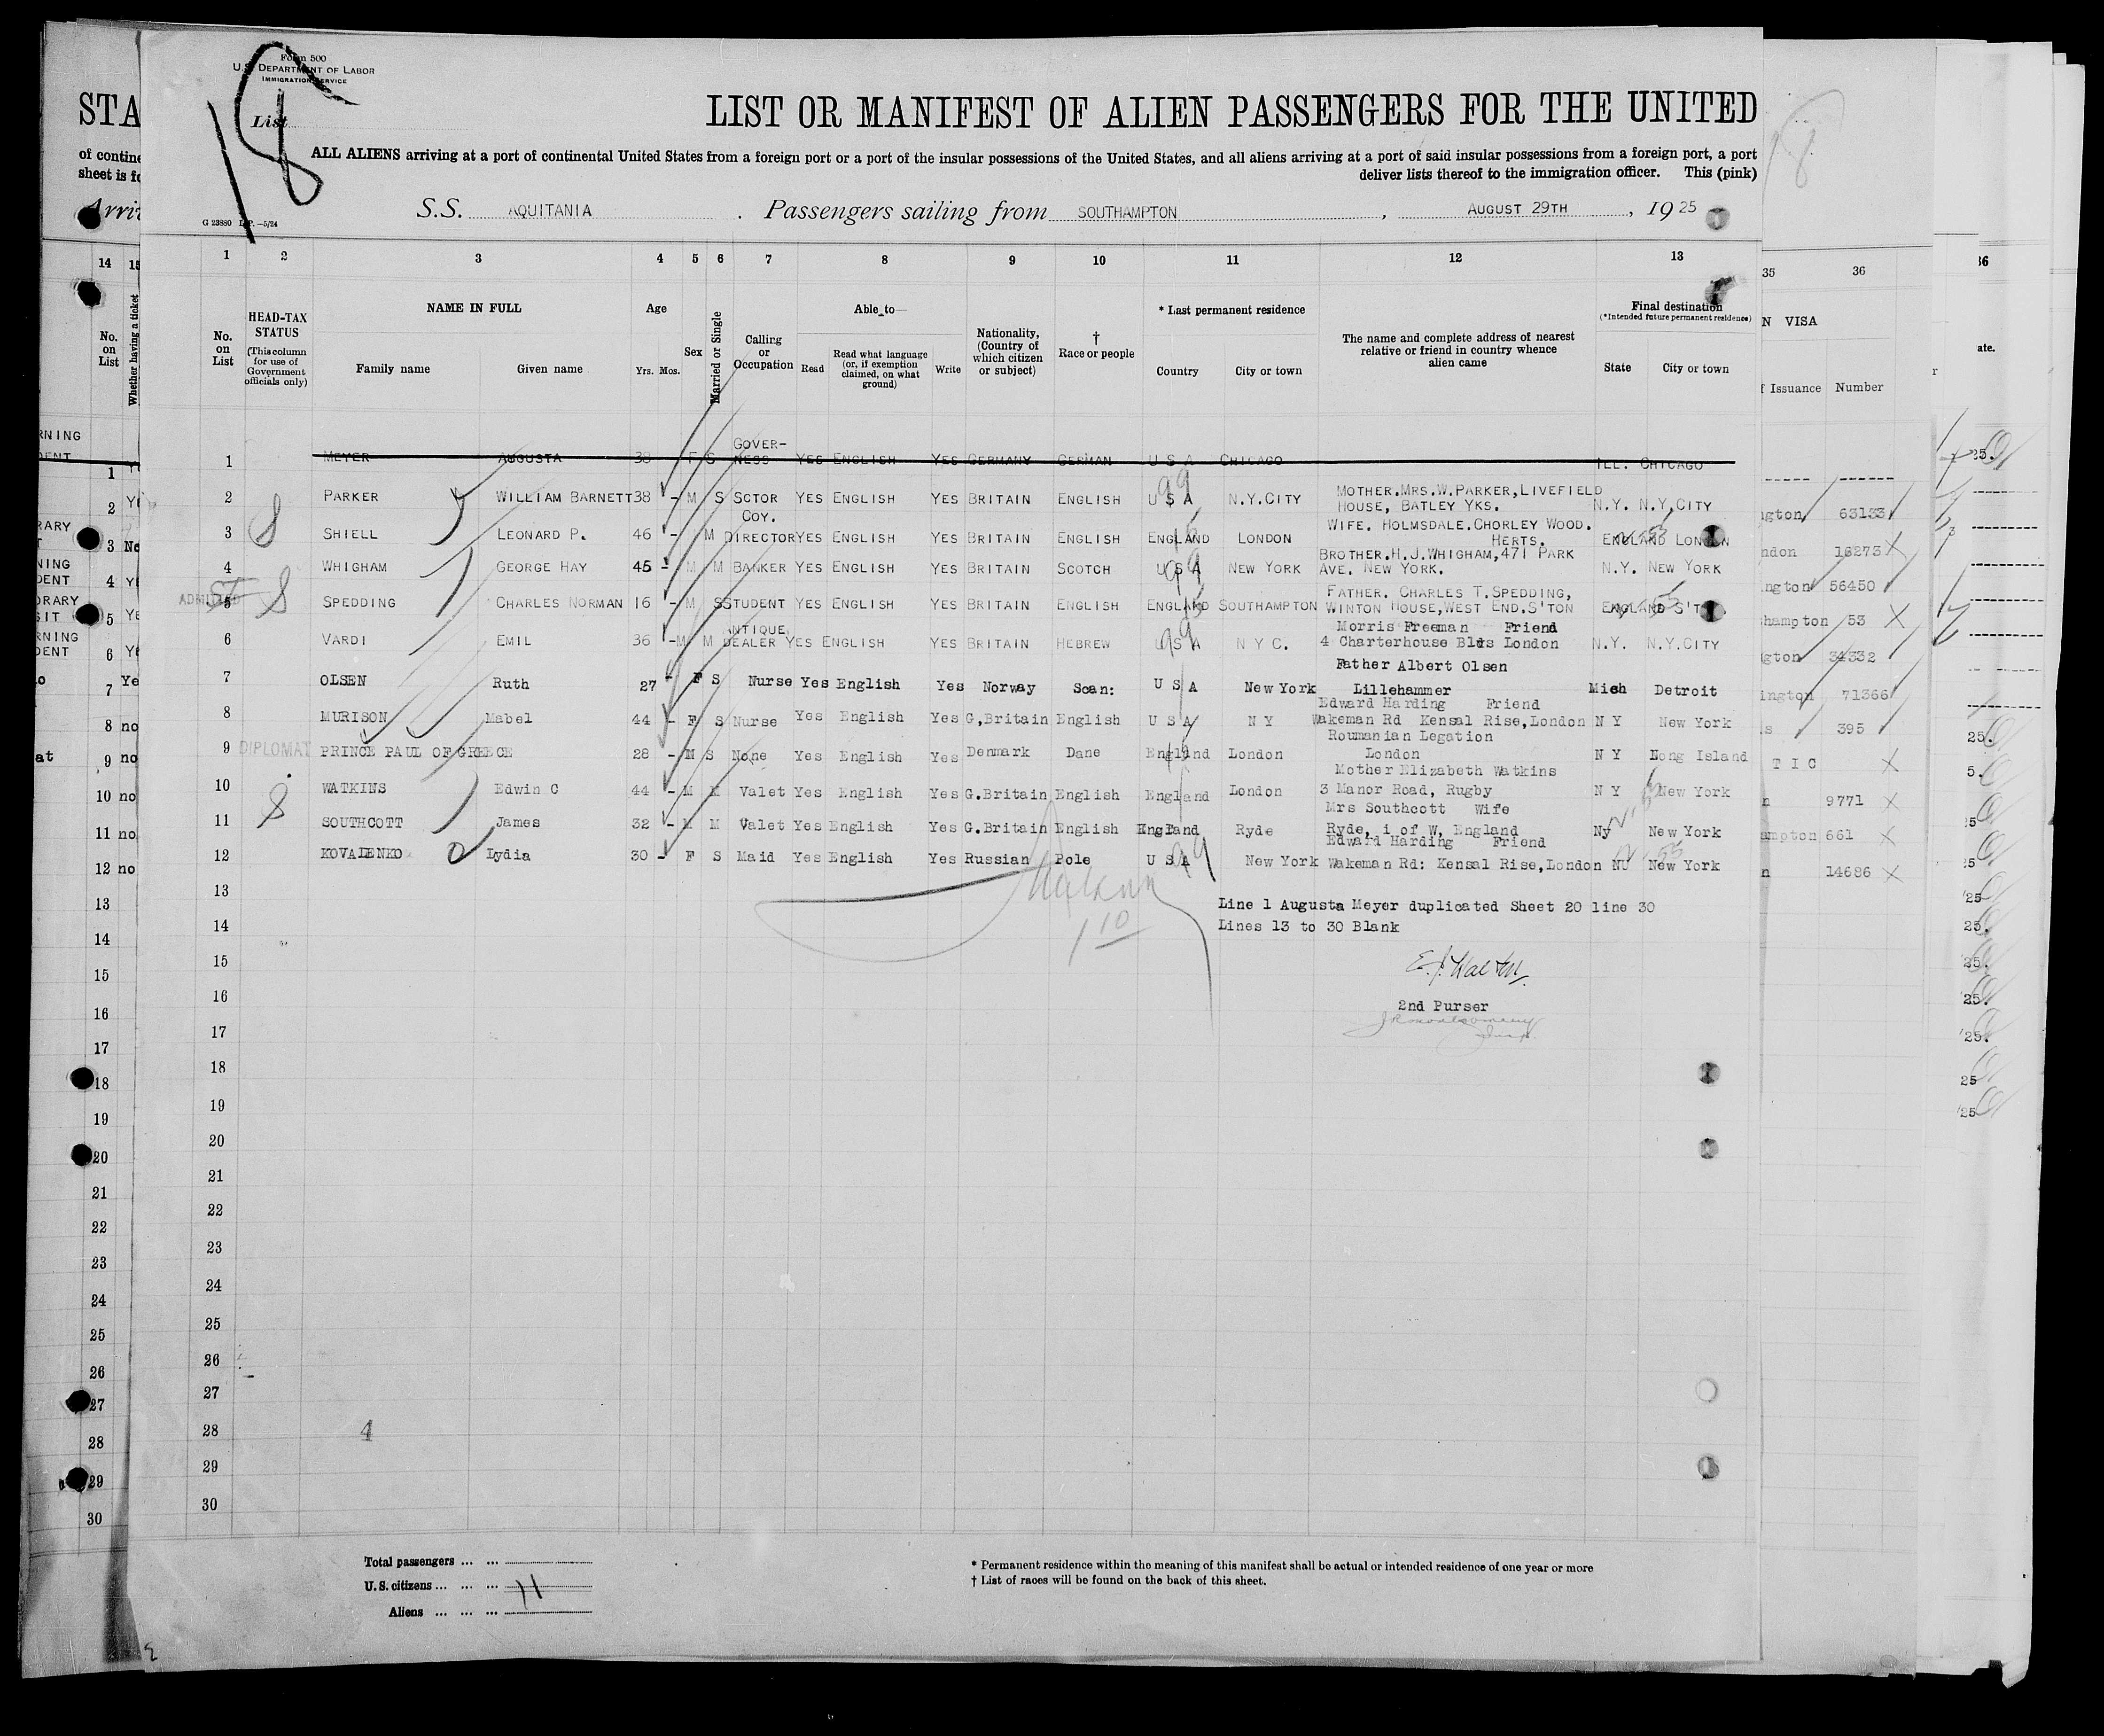 Form 500
U.S. DEPARTMENT OF LABOR
IMMIGRATION SERVICE
18
List
STA
LIST OR MANIFEST OF ALIEN PASSENGERS FOR THE UNITED
18
of contine
ALL ALIENS arriving at a port of continental United States from a foreign port or a port of the insular possessions of the United States, and all aliens arriving at a port of said insular possessions from a foreign port, a port
sheet is fo
deliver lists thereof to the immigration officer. This (pink)
Arri
S.S. AQUITANIA . Passengers sailing from SOUTHAMPTON , AUGUST 29TH , 19 25
14 15
1 2 3 4 5 6 7 8 9 10 11 12 13
35 36
No. on List
Whether having a ticket
No. on List
HEAD-TAX STATUS
(This column for use of Government officials only)
NAME IN FULL
Family name Given name
Age
Yrs. Mos.
Sex
Married or Single
Calling or Occupation
Able to—
Read
Read what language (or, if exemption claimed, on what ground)
Write
Nationality, (Country of which citizen or subject)
† Race or people
* Last permanent residence
Country City or town
The name and complete address of nearest relative or friend in country whence alien came
Final destination
(*Intended future permanent residence)
State City or town
N VISA
f Issuance Number
ate.
GOVER-
1 MEYER AUGUSTA 38 F S NESS YES ENGLISH YES GERMANY GERMAN U S A CHICAGO ILL. CHICAGO
MOTHER.MRS.W.PARKER,LIVEFIELD
2 PARKER WILLIAM BARNETT 38 - M S SCTOR YES ENGLISH YES BRITAIN ENGLISH U S A N.Y.CITY HOUSE, BATLEY YKS. N.Y. N.Y.CITY
ngton 63133
COY.
WIFE. HOLMSDALE.CHORLEY WOOD.
3 SHIELL LEONARD P. 46 - M DIRECTOR YES ENGLISH YES BRITAIN ENGLISH ENGLAND LONDON HERTS. ENGLAND LONDON
ndon 16273 X
BROTHER.H.J.WHIGHAM,471 PARK
4 WHIGHAM GEORGE HAY 45 - M M BANKER YES ENGLISH YES BRITAIN SCOTCH U S A NEW YORK AVE. NEW YORK. N.Y. NEW YORK
ngton 56450
FATHER. CHARLES T.SPEDDING,
ADMITTED 5 SPEDDING CHARLES NORMAN 16 - M S STUDENT YES ENGLISH YES BRITAIN ENGLISH ENGLAND SOUTHAMPTON WINTON HOUSE,WEST END.S'TON ENGLAND S'T
hampton 53 X
ANTIQUE
Morris Freeman Friend
6 VARDI EMIL 36 - M M DEALER YES ENGLISH YES BRITAIN HEBREW U S A N Y C. 4 Charterhouse Blds London N.Y. N.Y.CITY
gton 34332
Father Albert Olsen
7 OLSEN Ruth 27 - F S Nurse Yes English Yes Norway Scan: U S A New York Lillehammer Mich Detroit
ington 71366
Edward Harding Friend
8 MURISON Mabel 44 - F S Nurse Yes English Yes G,Britain English U S A N Y Wakeman Rd Kensal Rise,London N Y New York
s 395
Roumanian Legation
9 DIPLOMAT PRINCE PAUL OF GREECE 28 - M S None Yes English Yes Denmark Dane England London London N Y Long Island
T I C X
Mother Elizabeth Watkins
10 WATKINS Edwin C 44 - M M Valet Yes English Yes G.Britain English England London 3 Manor Road, Rugby N Y New York
n 9771 X
Mrs Southcott Wife
11 SOUTHCOTT James 32 - M M Valet Yes English Yes G.Britain English England Ryde Ryde, i of W, England Ny New York
ampton 661 X
Edward Harding Friend
12 KOVALENKO Lydia 30 - F S Maid Yes English Yes Russian Pole U S A New York Wakeman Rd: Kensal Rise,London NU New York
n 14686 X
13
Line 1 Augusta Meyer duplicated Sheet 20 line 30
14
Lines 13 to 30 Blank
1 10
15
16
2nd Purser
17
18
19
20
21
22
23
24
25
26
27
28
4
29
30
Total passengers ... ...
U.S. citizens ... ... ... 11
Aliens ... ... ...
* Permanent residence within the meaning of this manifest shall be actual or intended residence of one year or more
† List of races will be found on the back of this sheet.